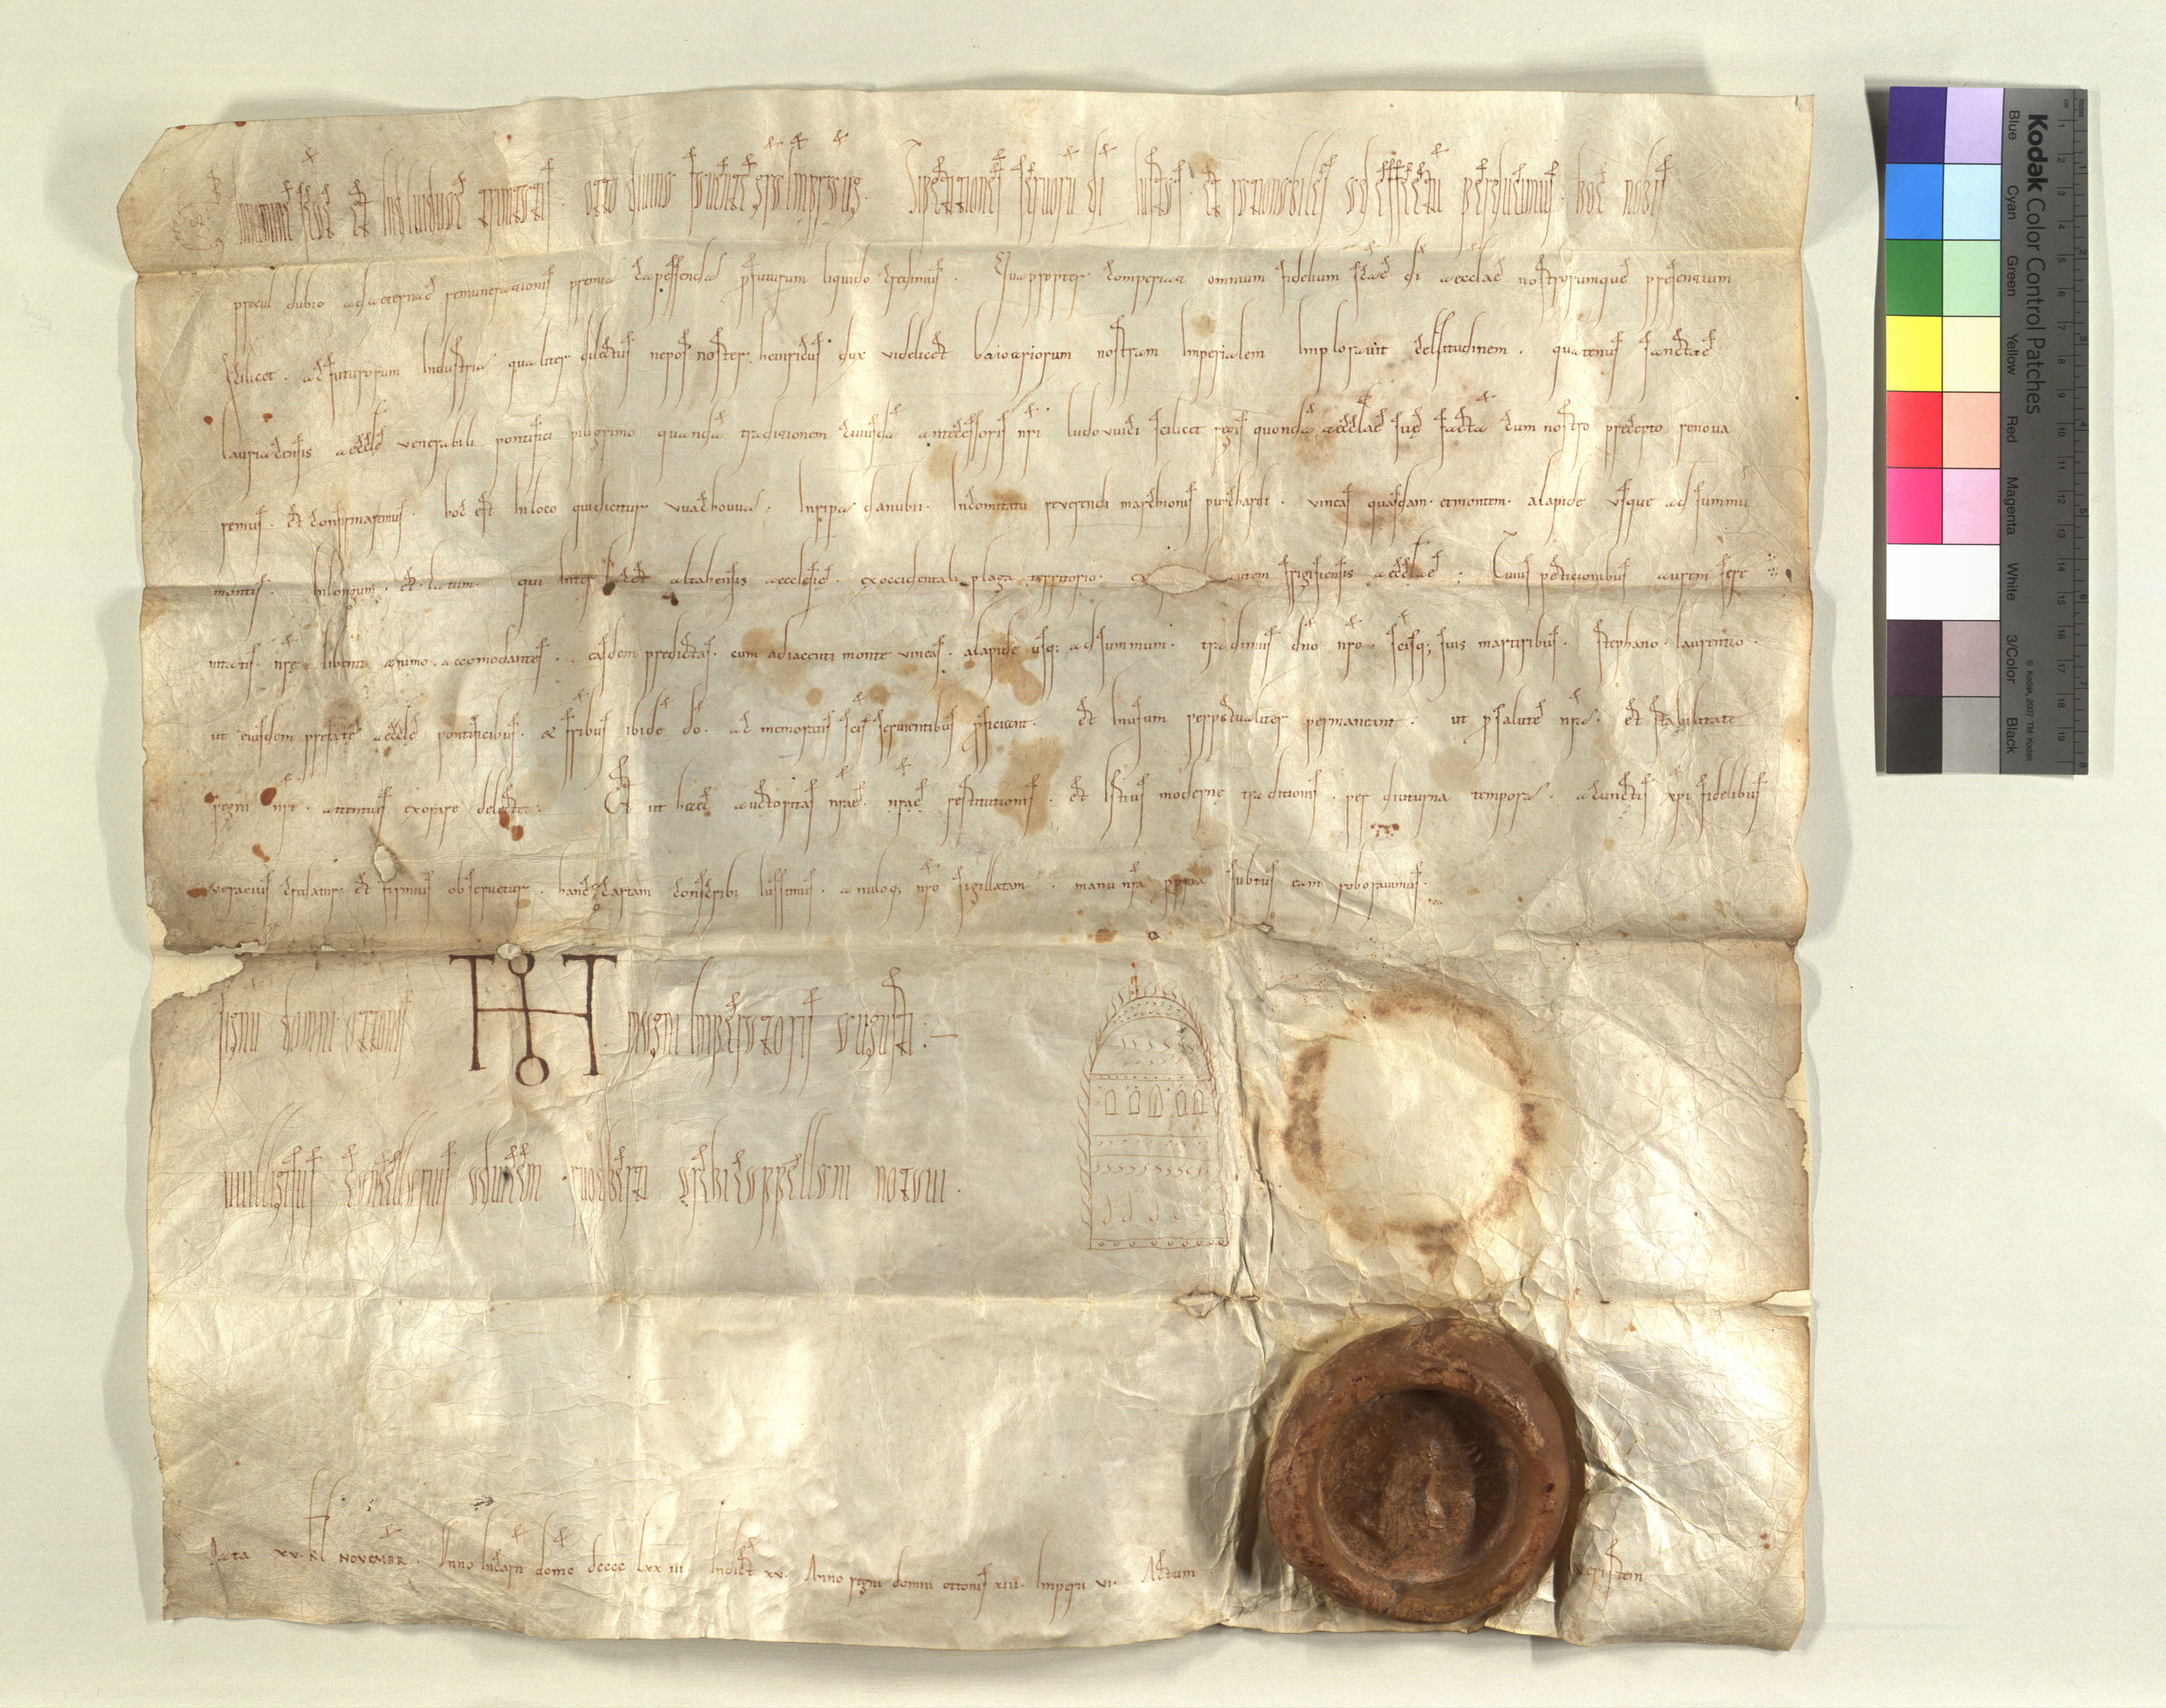 In nomine sc̄ę et individuę trinitatis · otto divina favente gr̄a imp̄r aug̅ · Si petitiones servorū dī iustas · et rationabiles ad effectū perducimus · hoc nobis
procul dubio ad aeternae remunerationis premia capessenda p̄futurum liquido credimus · Quapropter comperiat omnium fidelium sc̄ae dī aecclae nostrorumque presentium
scilicet · ac futurorum Industria qualiter dilectus nepos noster heinricus dux videlicet baioariorum nostram Imperialem Imploravit celsitudinem · quatenus sanctae
lauriacensis aecclę venerabili pontifici piligrimo quandā traditionem cuiusdā antecessoris nr̄i ludouuici scilicet regis quondā aecclae suę factā cum nostro precepto renova
remus · et confirmaremus · hoc est In loco qui dicitur vuachouua · In ripa danubii · In comitatu reverendi marchionis purchardi · vineas quasdam · et montem · a lapide usque ad summū
montis · In longum · et latum · qui Inter altahensis aecclesię · ex occidentali plaga territorio · frigisiensis aecclae : Cuius peticionibus aurem sere
nitatis nr̄ę libenti animo accomodantes · easdem predictas · cum adiacenti monte vineas · a lapide usq; ad summum · tradimus dn̄o nr̄o · sc̄isq; suis martiribus · stephano · laurentio ·
ut eiusdem prefatę aecclę pontificibus · & fr̄ibus ibidē dō · ac memoratis sc̄is servientibus p̄ficiant · et In usum perpetualiter permaneant · ut p̄ salute nr̄a · et stabilitate
regni nr̄i · attentius exorare delectet : Et ut haec auctoritas nr̄ae · nr̄ae restitutionis · et Istius modernę traditionis · per diuturna tempora · a cunctis xp̄i fidelibus
veracius credatur et firmius observetur · hanc cartam conscribi Iussimus · anuloq; nr̄o sigillatam · manu nr̄a pp̄ria subtus eam roboravimus ·
signū domni ottonis magni Imperatoris augusti :
uuilligisus cancellarius advicem ruodberti archicappellani notavi ·
Data xv · kl̄ NOVEMBR · Anno Incarn̄ domc̄ dcccc lxx iii · Indict̄ xv · Anno regni domni ottonis xiii · Imperii vi · Actum